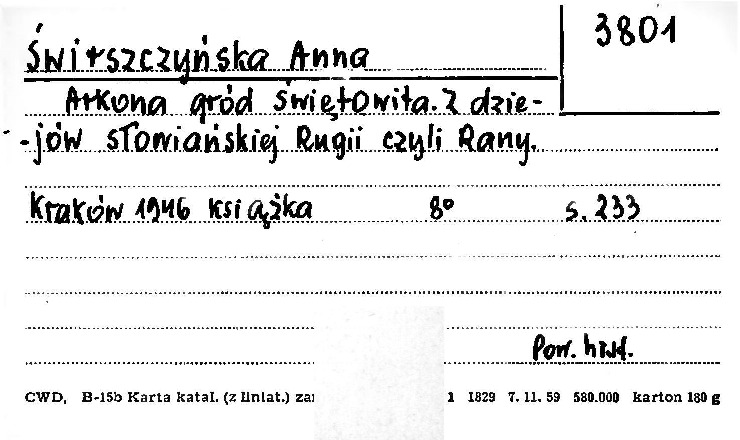 3801
Świrszczyńska Anna
Arkona gród Świętowita. Z dzie-
-jów słowiańskiej Rugii czyli Rany.
Kraków 1946 książka 8° s. 233
Pow. hist.
CWD, B-15b Karta katal. (z liniat.) zar 1 1829 7. 11. 59 580.000 karton 180 g